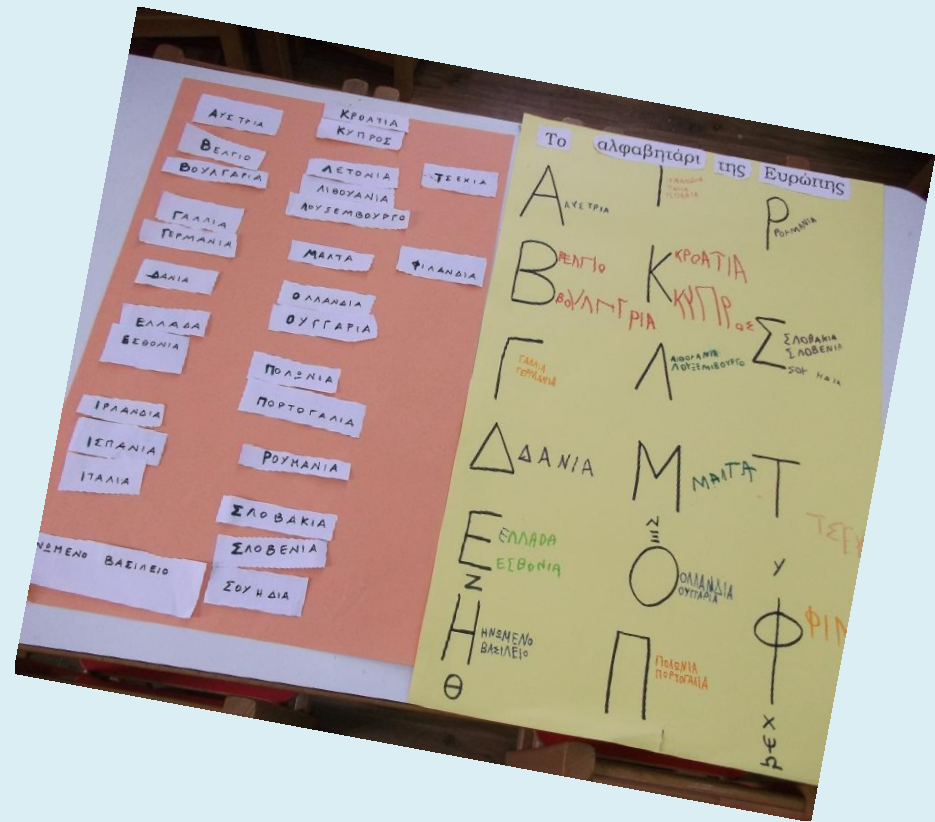 ΑΥΣΤΡΙΑ
ΒΕΛΓΙΟ
ΒΟΥΛΓΑΡΙΑ
ΓΑΛΛΙΑ
ΓΕΡΜΑΝΙΑ
ΔΑΝΙΑ
ΕΛΛΑΔΑ
ΕΣΘΟΝΙΑ
ΙΡΛΑΝΔΙΑ
ΙΣΠΑΝΙΑ
ΙΤΑΛΙΑ
ΝΩΜΕΝΟ ΒΑΣΙΛΕΙΟ
ΚΡΟΑΤΙΑ
ΚΥΠΡΟΣ
ΛΕΤΟΝΙΑ
ΛΙΘΟΥΑΝΙΑ
ΛΟΥΞΕΜΒΟΥΡΓΟ
ΜΑΛΤΑ
ΟΛΛΑΝΔΙΑ
ΟΥΓΓΑΡΙΑ
ΠΟΛΩΝΙΑ
ΠΟΡΤΟΓΑΛΙΑ
ΡΟΥΜΑΝΙΑ
ΣΛΟΒΑΚΙΑ
ΣΛΟΒΕΝΙΑ
ΣΟΥΗΔΙΑ
ΤΣΕΧΙΑ
ΦΙΛΑΝΔΙΑ
Το αλφαβητάρι της Ευρώπης
Α ΑΥΣΤΡΙΑ
Β ΒΕΛΓΙΟ
ΒΟΥΛΓΓΡΙΑ
Γ ΓΑΛΛΙΑ
ΓΕΡΜΑΝΙΑ
Δ ΔΑΝΙΑ
Ε ΕΛΛΑΔΑ
ΕΣΘΟΝΙΑ
Ζ
Η ΗΝΩΜΕΝΟ
ΒΑΣΙΛΕΙΟ
Θ
Ι
Κ ΚΡΟΑΤΙΑ
ΚΥΠΡΟΣ
Λ
ΛΟΥΞΕΜΒΟΥΡΓΟ
Μ ΜΑΛΤΑ
Ν
Ξ
Ο ΟΛΛΑΝΔΙΑ
ΟΥΓΓΑΡΙΑ
Π ΠΟΛΩΝΙΑ
ΠΟΡΤΟΓΑΛΙΑ
Ρ ΡΟΥΜΑΝΙΑ
Σ ΣΛΟΒΑΚΙΑ
ΣΛΟΒΕΝΙΑ
ΣΟΥΗΔΙΑ
Τ ΤΣΕΧ
Υ
Φ ΦΙΛ
Χ
Ψ
Ω